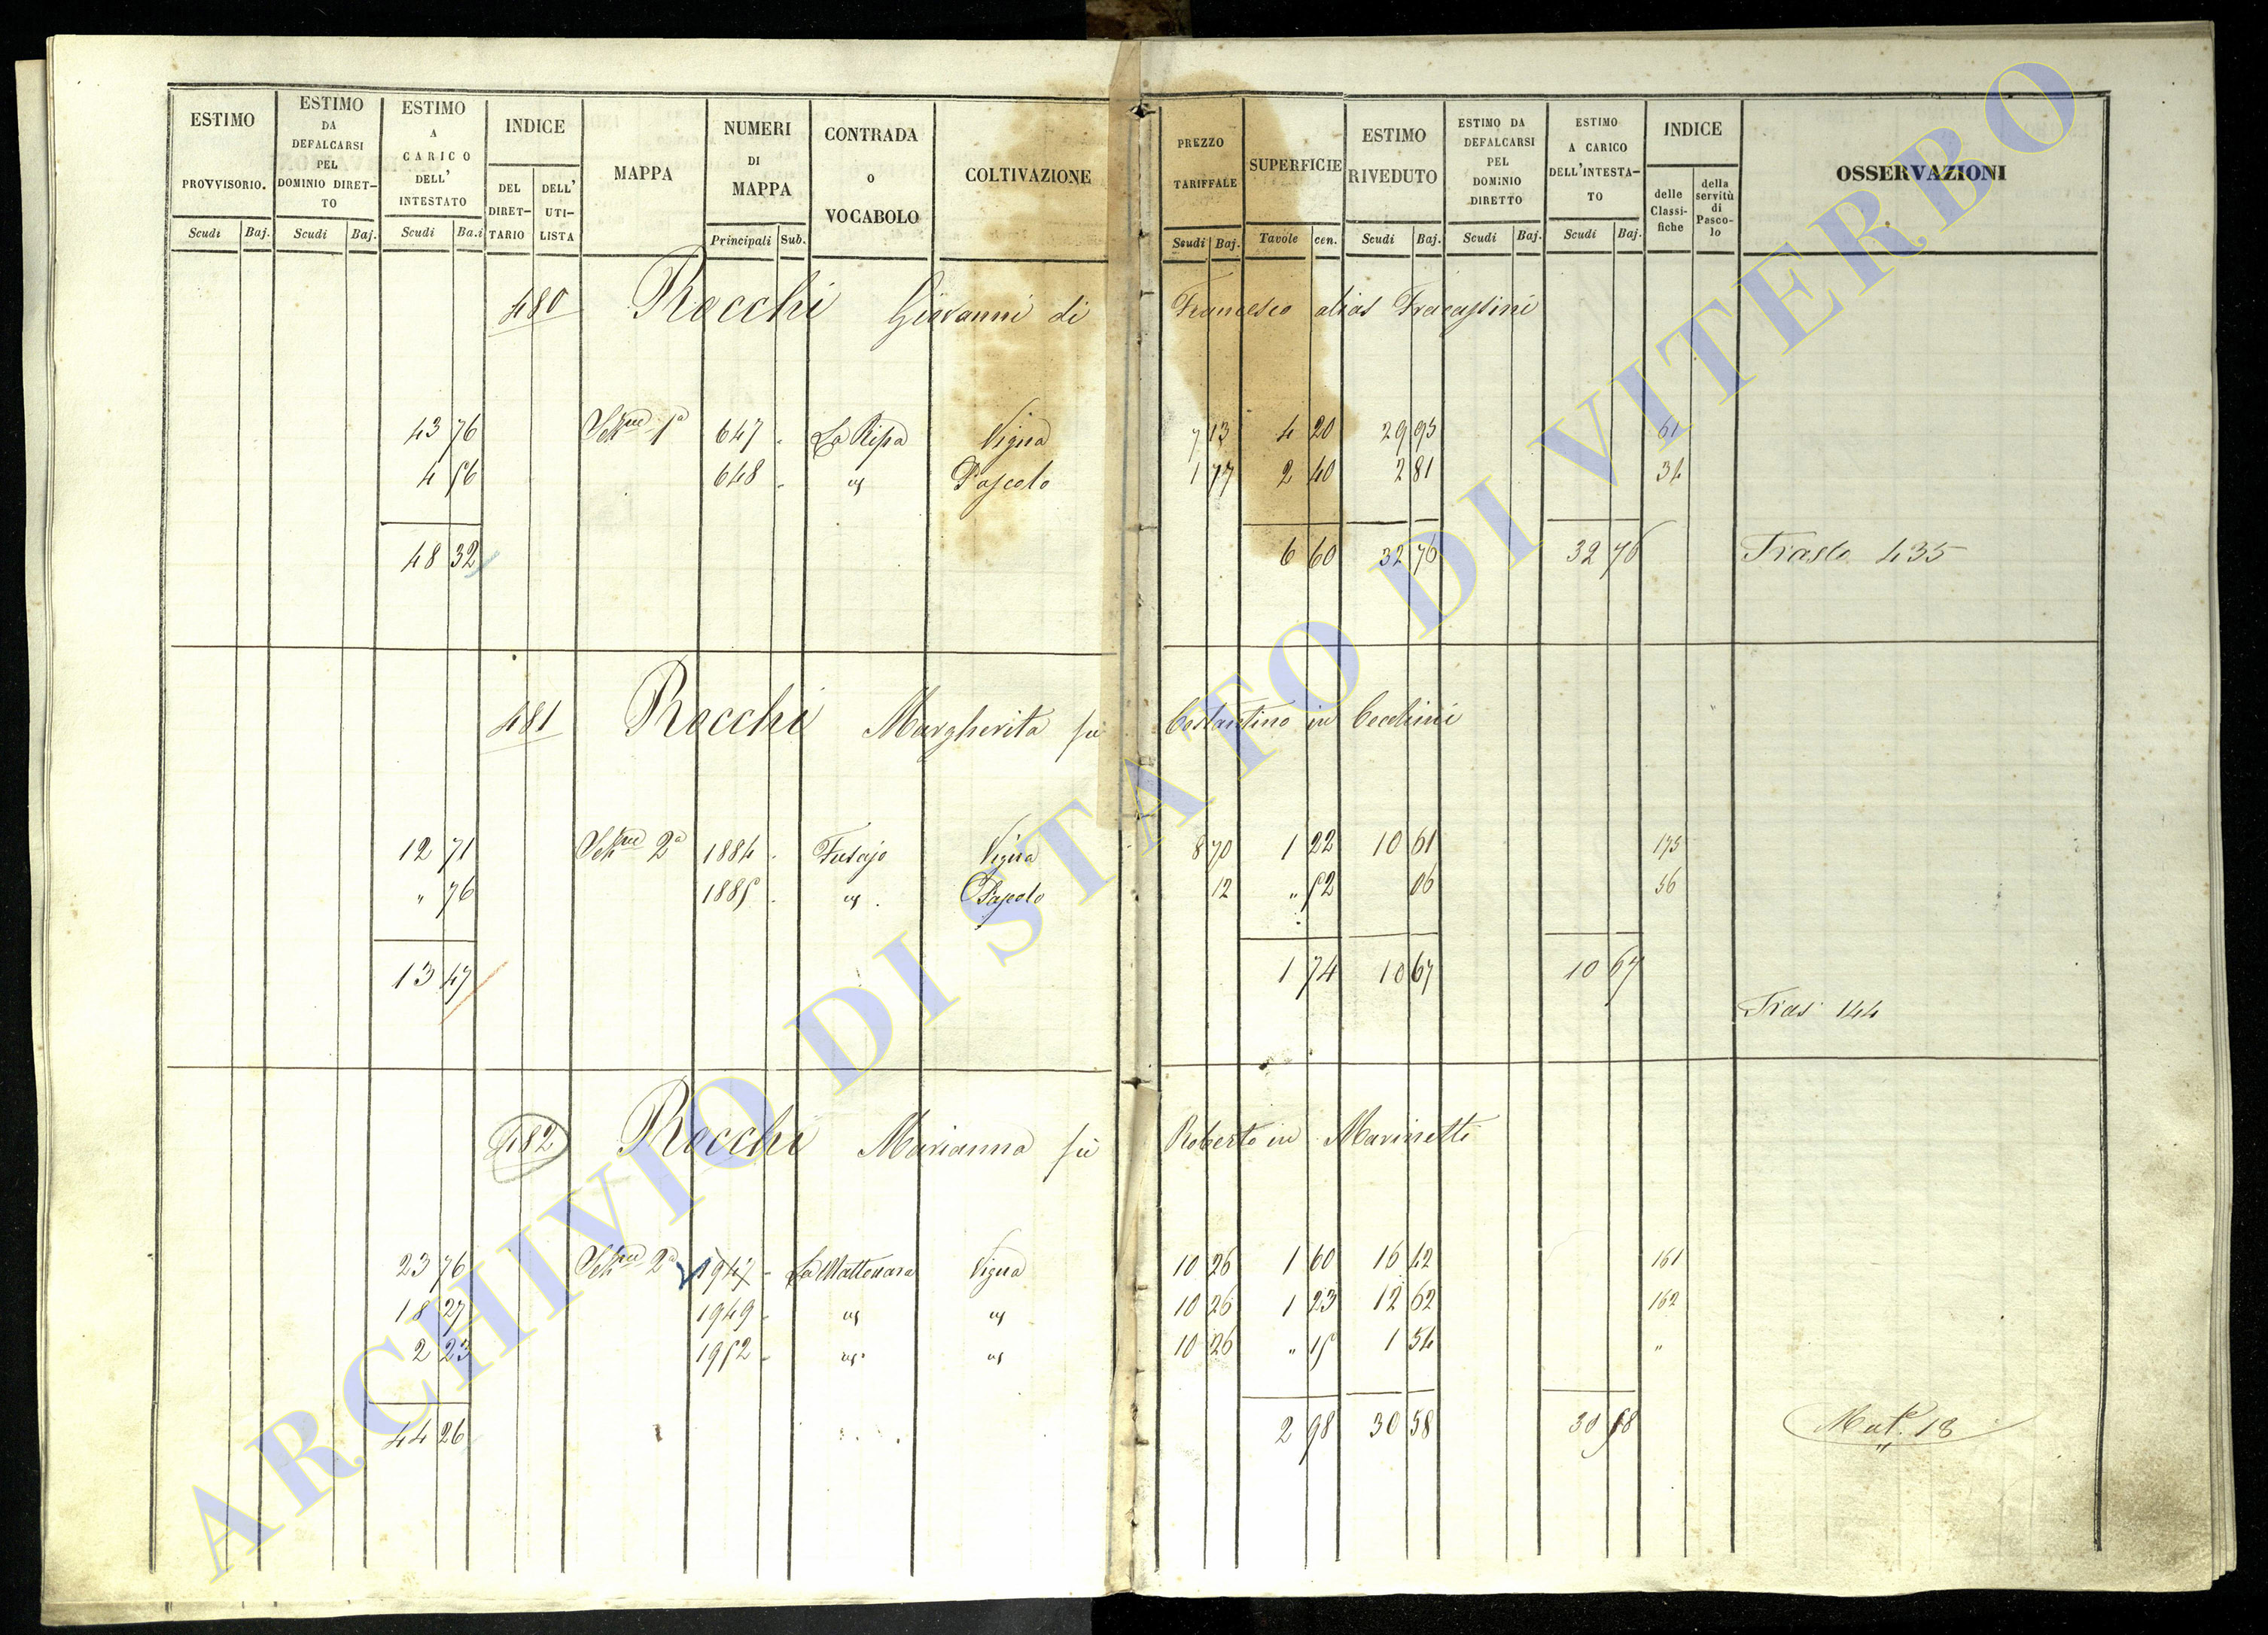 ESTIMO PROVVISORIO. ESTIMO DA DEFALCARSI PEL DOMINIO DIRETTO ESTIMO A CARICO DELL' INTESTATO INDICE MAPPA NUMERI DI MAPPA CONTRADA O VOCABOLO COLTIVAZIONE PREZZO TARIFFALE SUPERFICIE ESTIMO RIVEDUTO ESTIMO DA DEFALCARSI PEL DOMINIO DIRETTO ESTIMO A CARICO DELL'INTESTATO INDICE OSSERVAZIONI
DEL DIRETTARIO DELL' UTILISTA delle Classifiche della servitù di Pascolo
Scudi Baj. Scudi Baj. Scudi Ba.i Principali Sub. Scudi Baj. Tavole cen. Scudi Baj. Scudi Baj. Scudi Baj.
480 Rocchi Giovanni di Francesco alias Fracassini
43 76 Sezne 1a 647 - La Ripa Vigna 7 13 4 20 29 95 61
4 56 648 - " Pascolo 1 17 2 40 2 81 34
48 32 6 60 32 76 32 76 Trasto 435
481 Rocchi Margherita fù Costantino in Cecchini
12 71 Sezne 2a 1884 - Vigna 8 70 1 22 10 61 175
" 76 1885 - " Pascolo 12 " 52 06 36
13 47 1 74 10 67 10 67
Tras 144
482 Rocchi Marianna fù Roberto in Marinetti
23 76 Sezne 2a 1947 - La Mattonara Vigna 10 26 1 60 16 42 161
18 27 1949 - " " 10 26 1 23 12 62 162
2 23 1952 - " " 10 26 " 15 1 54 "
44 26 2 98 30 58 30 58 Mut. 18
ARCHIVIO DI STATO DI VITERBO